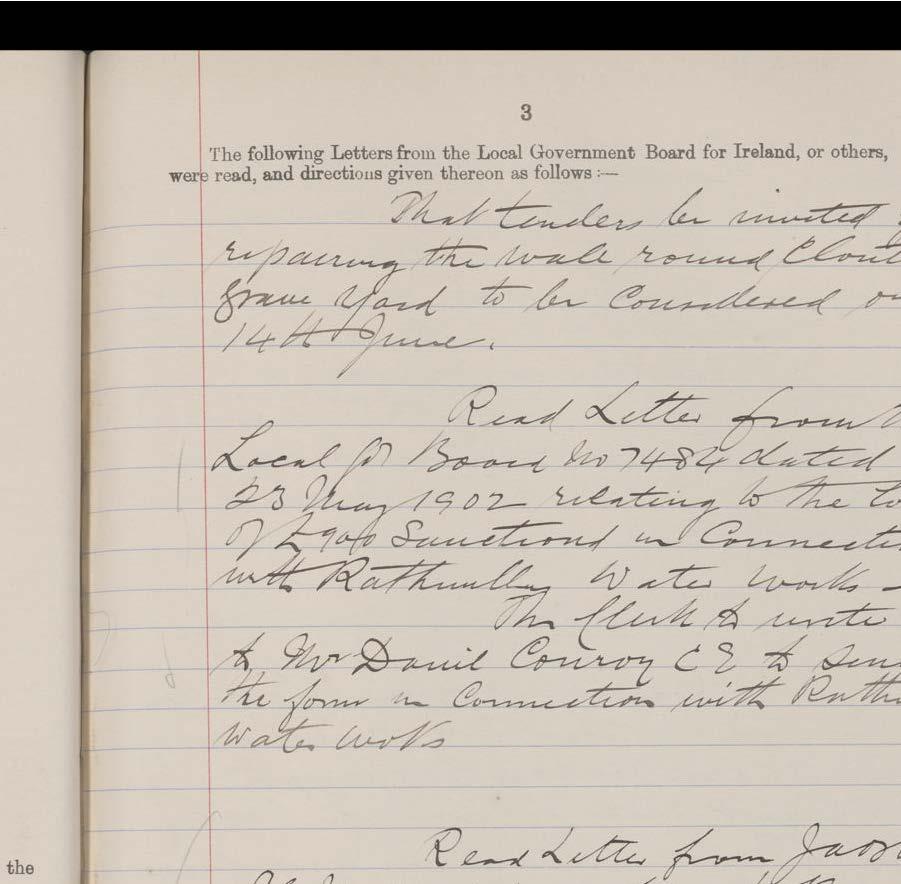 3
The following Letters from the Local Government Board for Ireland, or others,
were read, and directions given thereon as follows :—
That tenders be invited
repairing the wall round
Grave Yard to be Considered on
14th June.
Read Letter from
Local Board No 7484 dated
23 May 1902 relating to the Lo
of £900 Sanctiond in Connecti
with Rathmullen Water Works —
The Clerk to write
to Mr Daniel Conroy C E to sen
the form in Connection with Rath
Water Works
the
Read Letter from